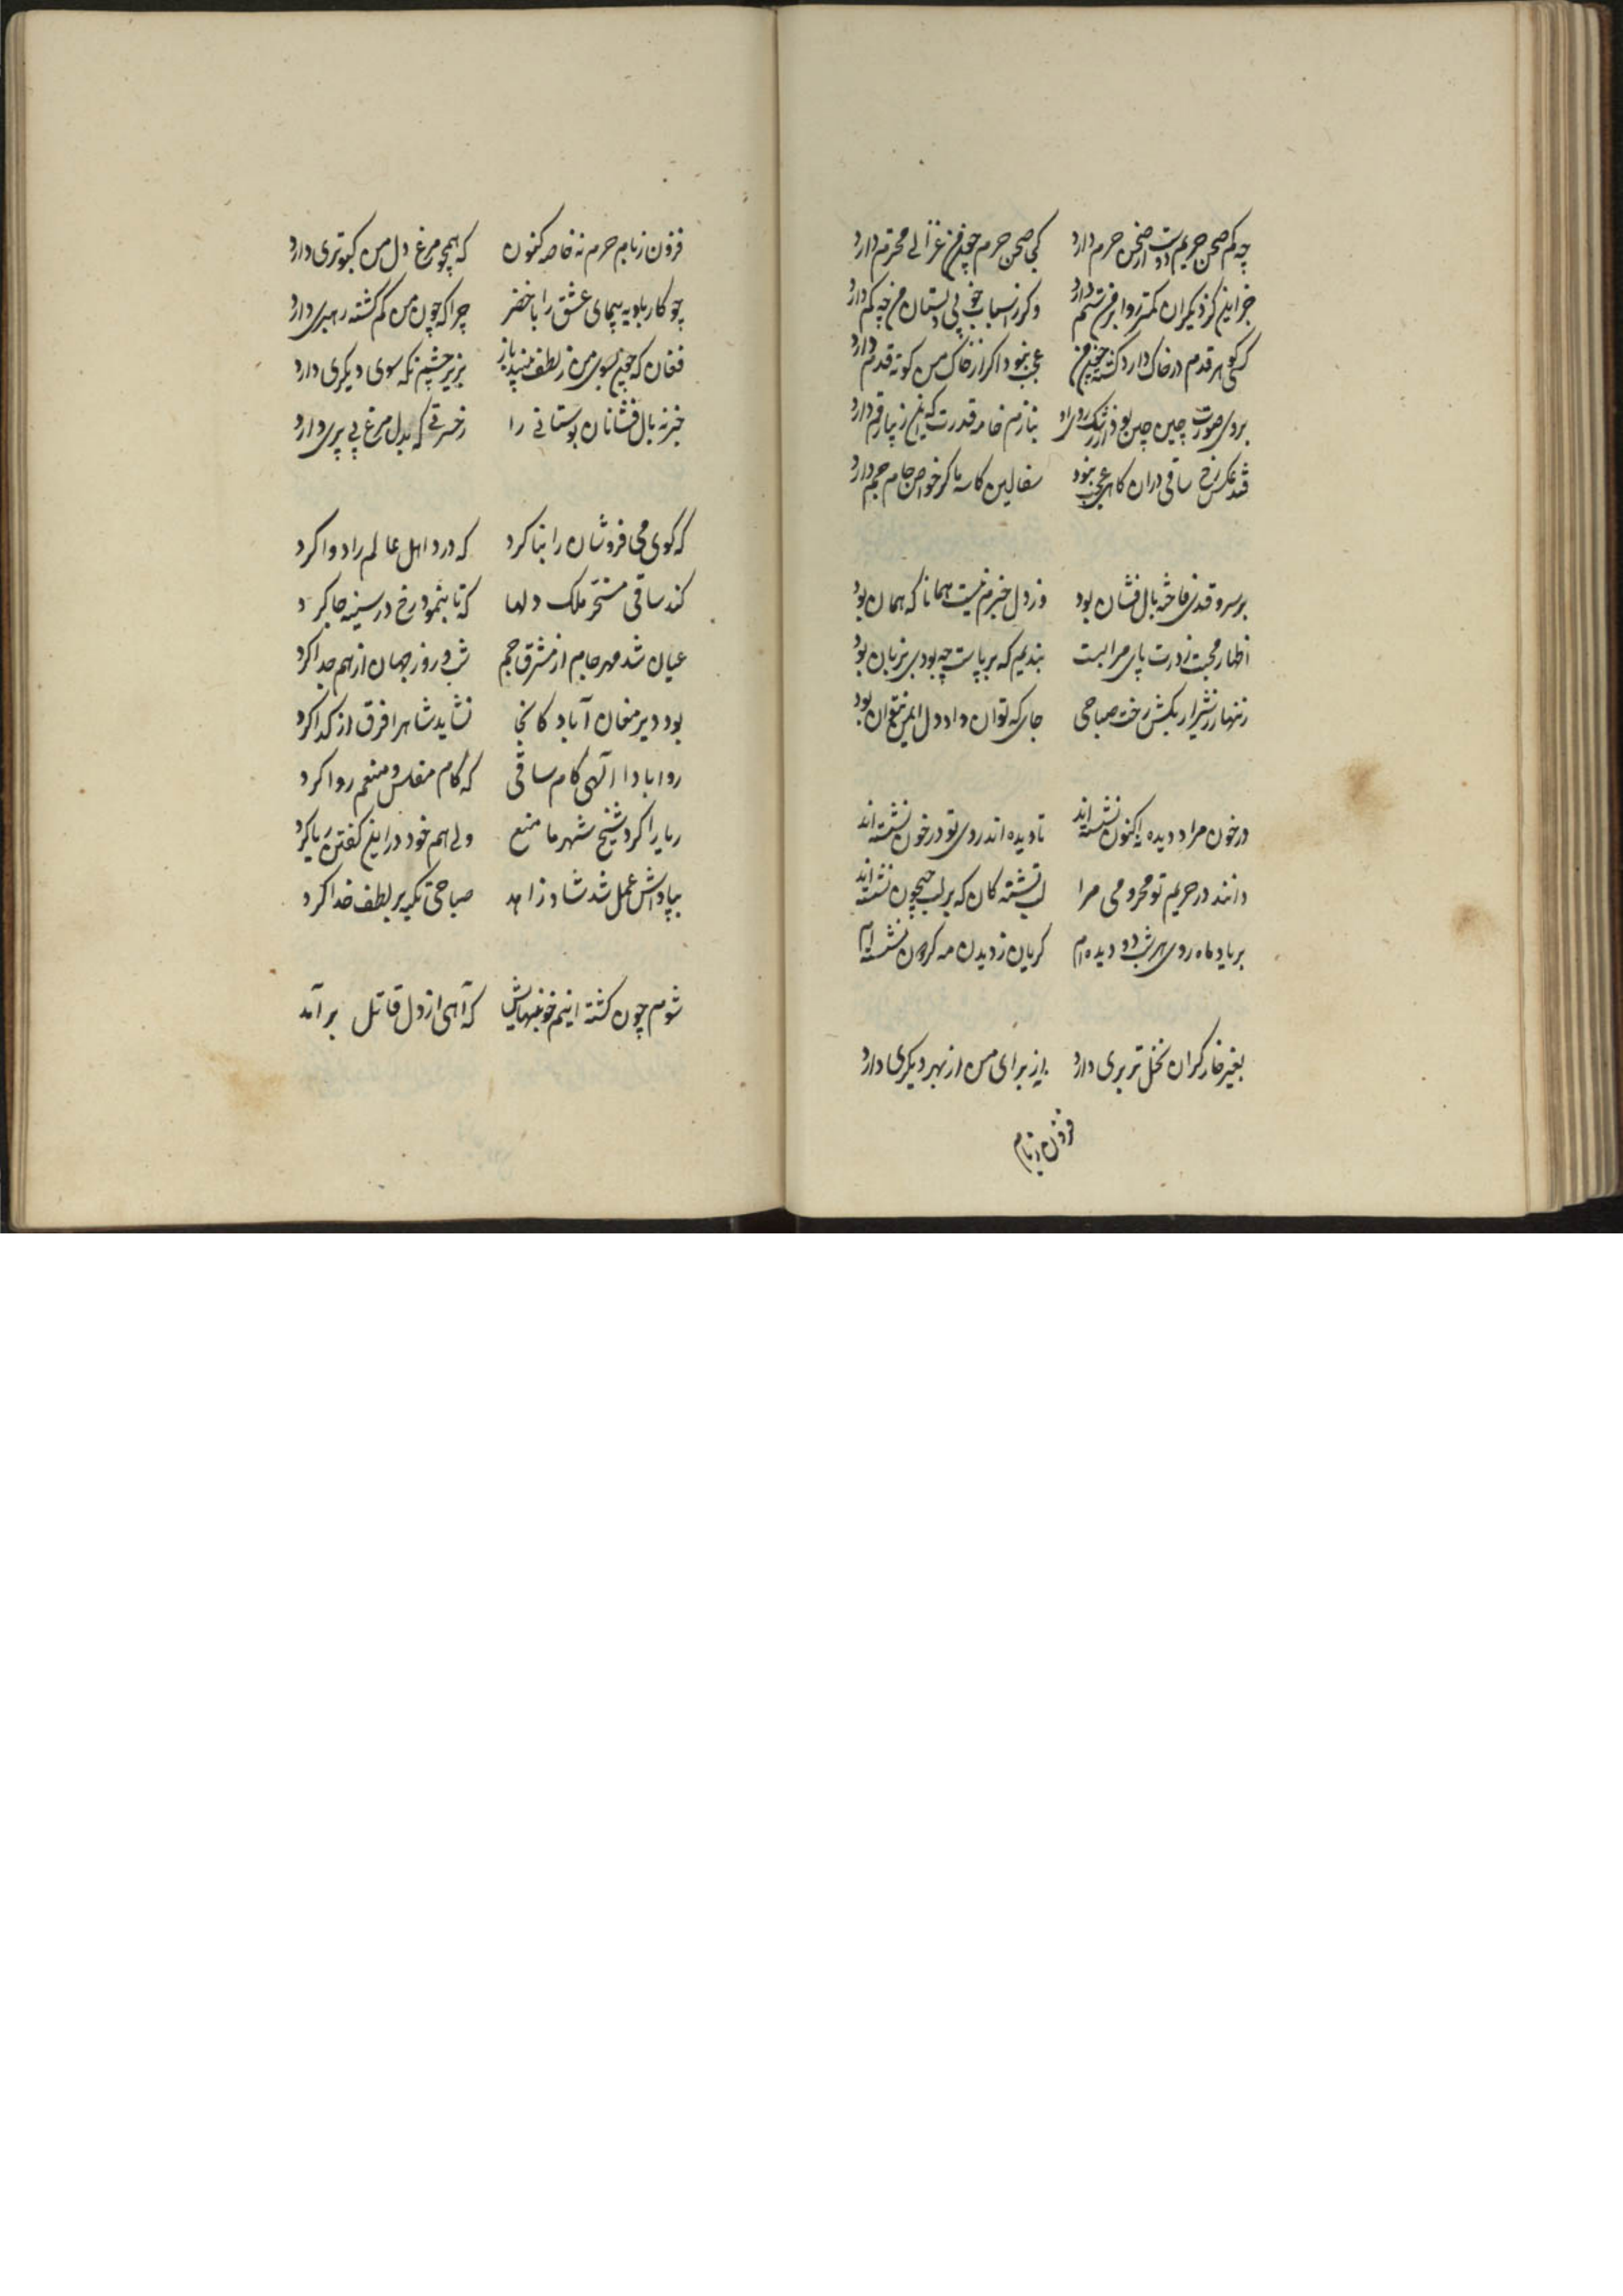 چه کم صحن حریم دوست از صحن حرم دارد کی صحن حرم چون من غزالی محترم دارد
جز اینکز دیگران کمتر روا بر من ستم دارد وگرز اسباب خوبی دلستان من چه کم دارد
که کوی هر قدم در خاک دارد کشته چون من عجب نبود اگر از خاک من کوته قدم دارد
بروی صورت چین چین بود از رشک روی او بنازم خامه قدرت که این زیبا رقم دارد
فتد عکس رخ ساقی در آن گاهی عجب نبود سفالین کاسه ما گر خواص جام جم دارد
بر سرو قدی فاخته بال فشان بود وز دل خبرم نیست همانا که همان بود
اظهار محبت ز درت پای مرا بست بندیم که بر پاست چه بودی بزبان بود
زنهار ز شیراز بکش رخت صباحی جایی که توان داد دل ایمن نتوان بود
در خون مرا دو دیده نه اکنون نشسته اند تا دیده اند روی تو در خون نشسته اند
دانند در حریم تو محرومی مرا لب تشنه کان که بر لب جیحون نشسته اند
بر یاد ماه روی هر شب دو دیده ام گریان ز دیدن مه گردون نشسته ایم
بغیر خار گر آن نخل تر بری دارد نه از برای من از بهر دیگری دارد
فزون ز بام
فزون ز بام حرم نه خاصه کنون که همچو مرغ دل من کبوتری دارد
چو کار بادیه پیمای عشق را با خضر چرا که چون من گم گشته رهبری دارد
فغان که چون بسوی من ز لطف بیند باز بزیر چشم نگه سوی دیگری دارد
خبر نه بال فشانان بوستانی را ز حسرتی که بدل مرغ بی پری دارد
که کوی می فروشان را بنا کرد که درد اهل عالم را دوا کرد
کند ساقی مسخر ملک دلها که تا بنمود رخ در سینه جا کرد
عیان شد مهر جام از مشرق جم شب و روز جهان از هم جدا کرد
بود دیر مغان آباد کانجا نشاید شاه را فرق از گدا کرد
روا بادا الهی کام ساقی که کام مفلس و منعم روا کرد
ریا را کرد شیخ شهر ما منع ولی هم خود در این گفتن ریا کرد
بپاداش عمل شد شاد زاهد صباحی تکیه بر لطف خدا کرد
شوم چون کشته اینم خونبهایش که آهی از دل قاتل برآمد